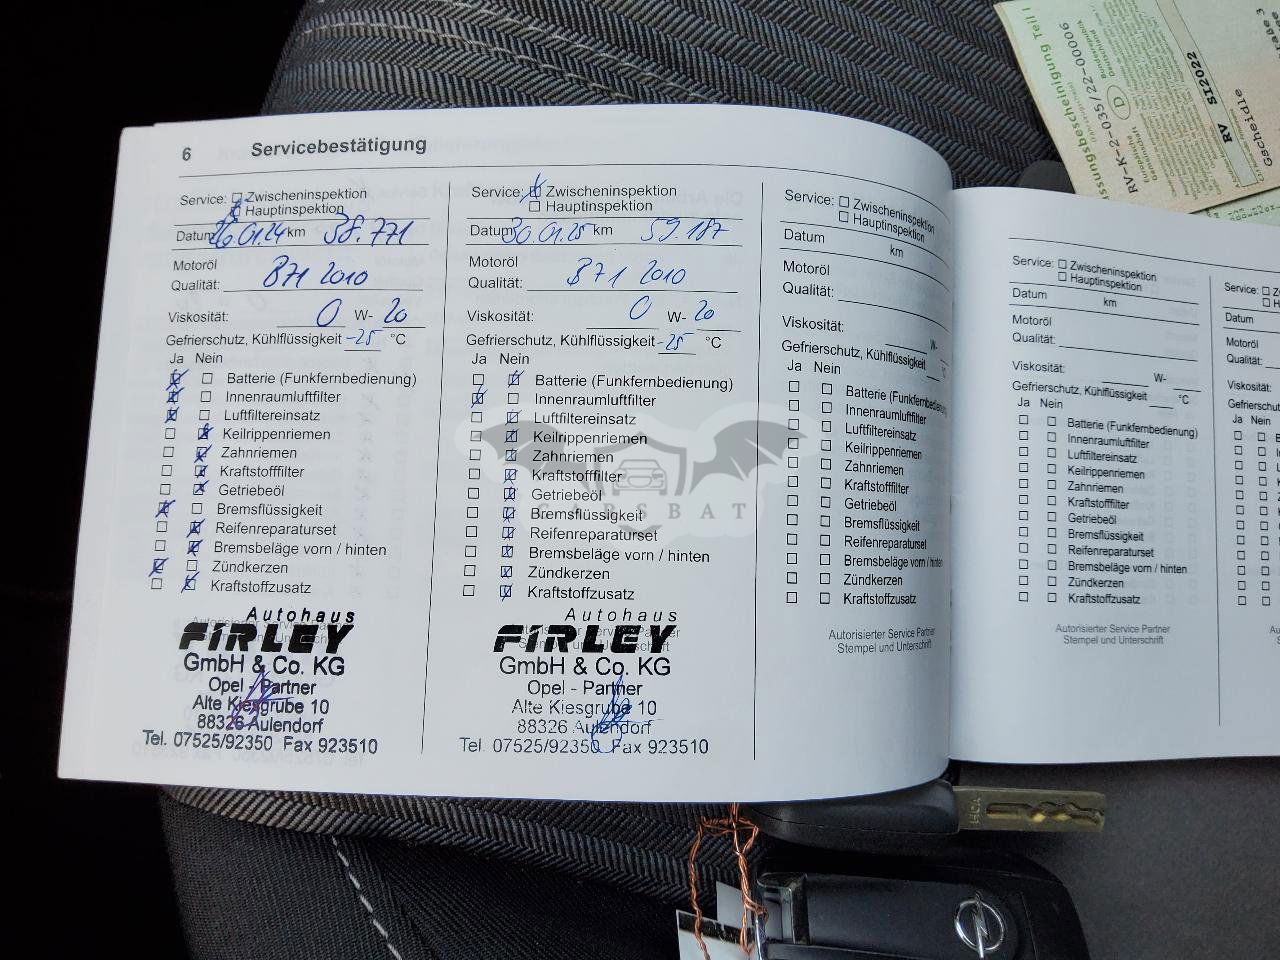 6 Servicebestätigung
Service: Zwischeninspektion
Hauptinspektion
Datum 26.01.24 km 38.771
Motoröl
Qualität: B71 2010
Viskosität: 0 W- 20
Gefrierschutz, Kühlflüssigkeit -25 °C
Ja Nein
Batterie (Funkfernbedienung)
Innenraumluftfilter
Luftfiltereinsatz
Keilrippenriemen
Zahnriemen
Kraftstofffilter
Getriebeöl
Bremsflüssigkeit
Reifenreparaturset
Bremsbeläge vorn / hinten
Zündkerzen
Kraftstoffzusatz
Autohaus
FIRLEY
GmbH & Co. KG
Opel - Partner
Alte Kiesgrube 10
88326 Aulendorf
Tel. 07525/92350 Fax 923510
Service: Zwischeninspektion
Hauptinspektion
Datum 30.01.25 km 59.187
Motoröl
Qualität: B71 2010
Viskosität: 0 W- 20
Gefrierschutz, Kühlflüssigkeit -25 °C
Ja Nein
Batterie (Funkfernbedienung)
Innenraumluftfilter
Luftfiltereinsatz
Keilrippenriemen
Zahnriemen
Kraftstofffilter
Getriebeöl
Bremsflüssigkeit
Reifenreparaturset
Bremsbeläge vorn / hinten
Zündkerzen
Kraftstoffzusatz
Autohaus
FIRLEY
GmbH & Co. KG
Opel - Partner
Alte Kiesgrube 10
88326 Aulendorf
Tel. 07525/92350 Fax 923510
Service: Zwischeninspektion
Hauptinspektion
Datum km
Motoröl
Qualität:
Viskosität: W-
Gefrierschutz, Kühlflüssigkeit °C
Ja Nein
Batterie (Funkfernbedienung
Innenraumluftfilter
Luftfiltereinsatz
Keilrippenriemen
Zahnriemen
Kraftstofffilter
Getriebeöl
Bremsflüssigkeit
Reifenreparaturset
Bremsbeläge vorn / hinten
Zündkerzen
Kraftstoffzusatz
Autorisierter Service Partner
Stempel und Unterschrift
Service: Zwischeninspektion
Hauptinspektion
Datum km
Motoröl
Qualität:
Viskosität: W-
Gefrierschutz, Kühlflüssigkeit °C
Ja Nein
Batterie (Funkfernbedienung)
Innenraumluftfilter
Luftfiltereinsatz
Keilrippenriemen
Zahnriemen
Kraftstofffilter
Getriebeöl
Bremsflüssigkeit
Reifenreparaturset
Bremsbeläge vorn / hinten
Zündkerzen
Kraftstoffzusatz
Autorisierter Service Partner
Stempel und Unterschrift
Service:
Datum
Motoröl
Qualität:
Viskosität:
Ja Nein
CARSBAT
ssungsbescheinigung Teil I
RV-K-2-035/22-00006
D
RV SI2022
Gscheidle
HCA